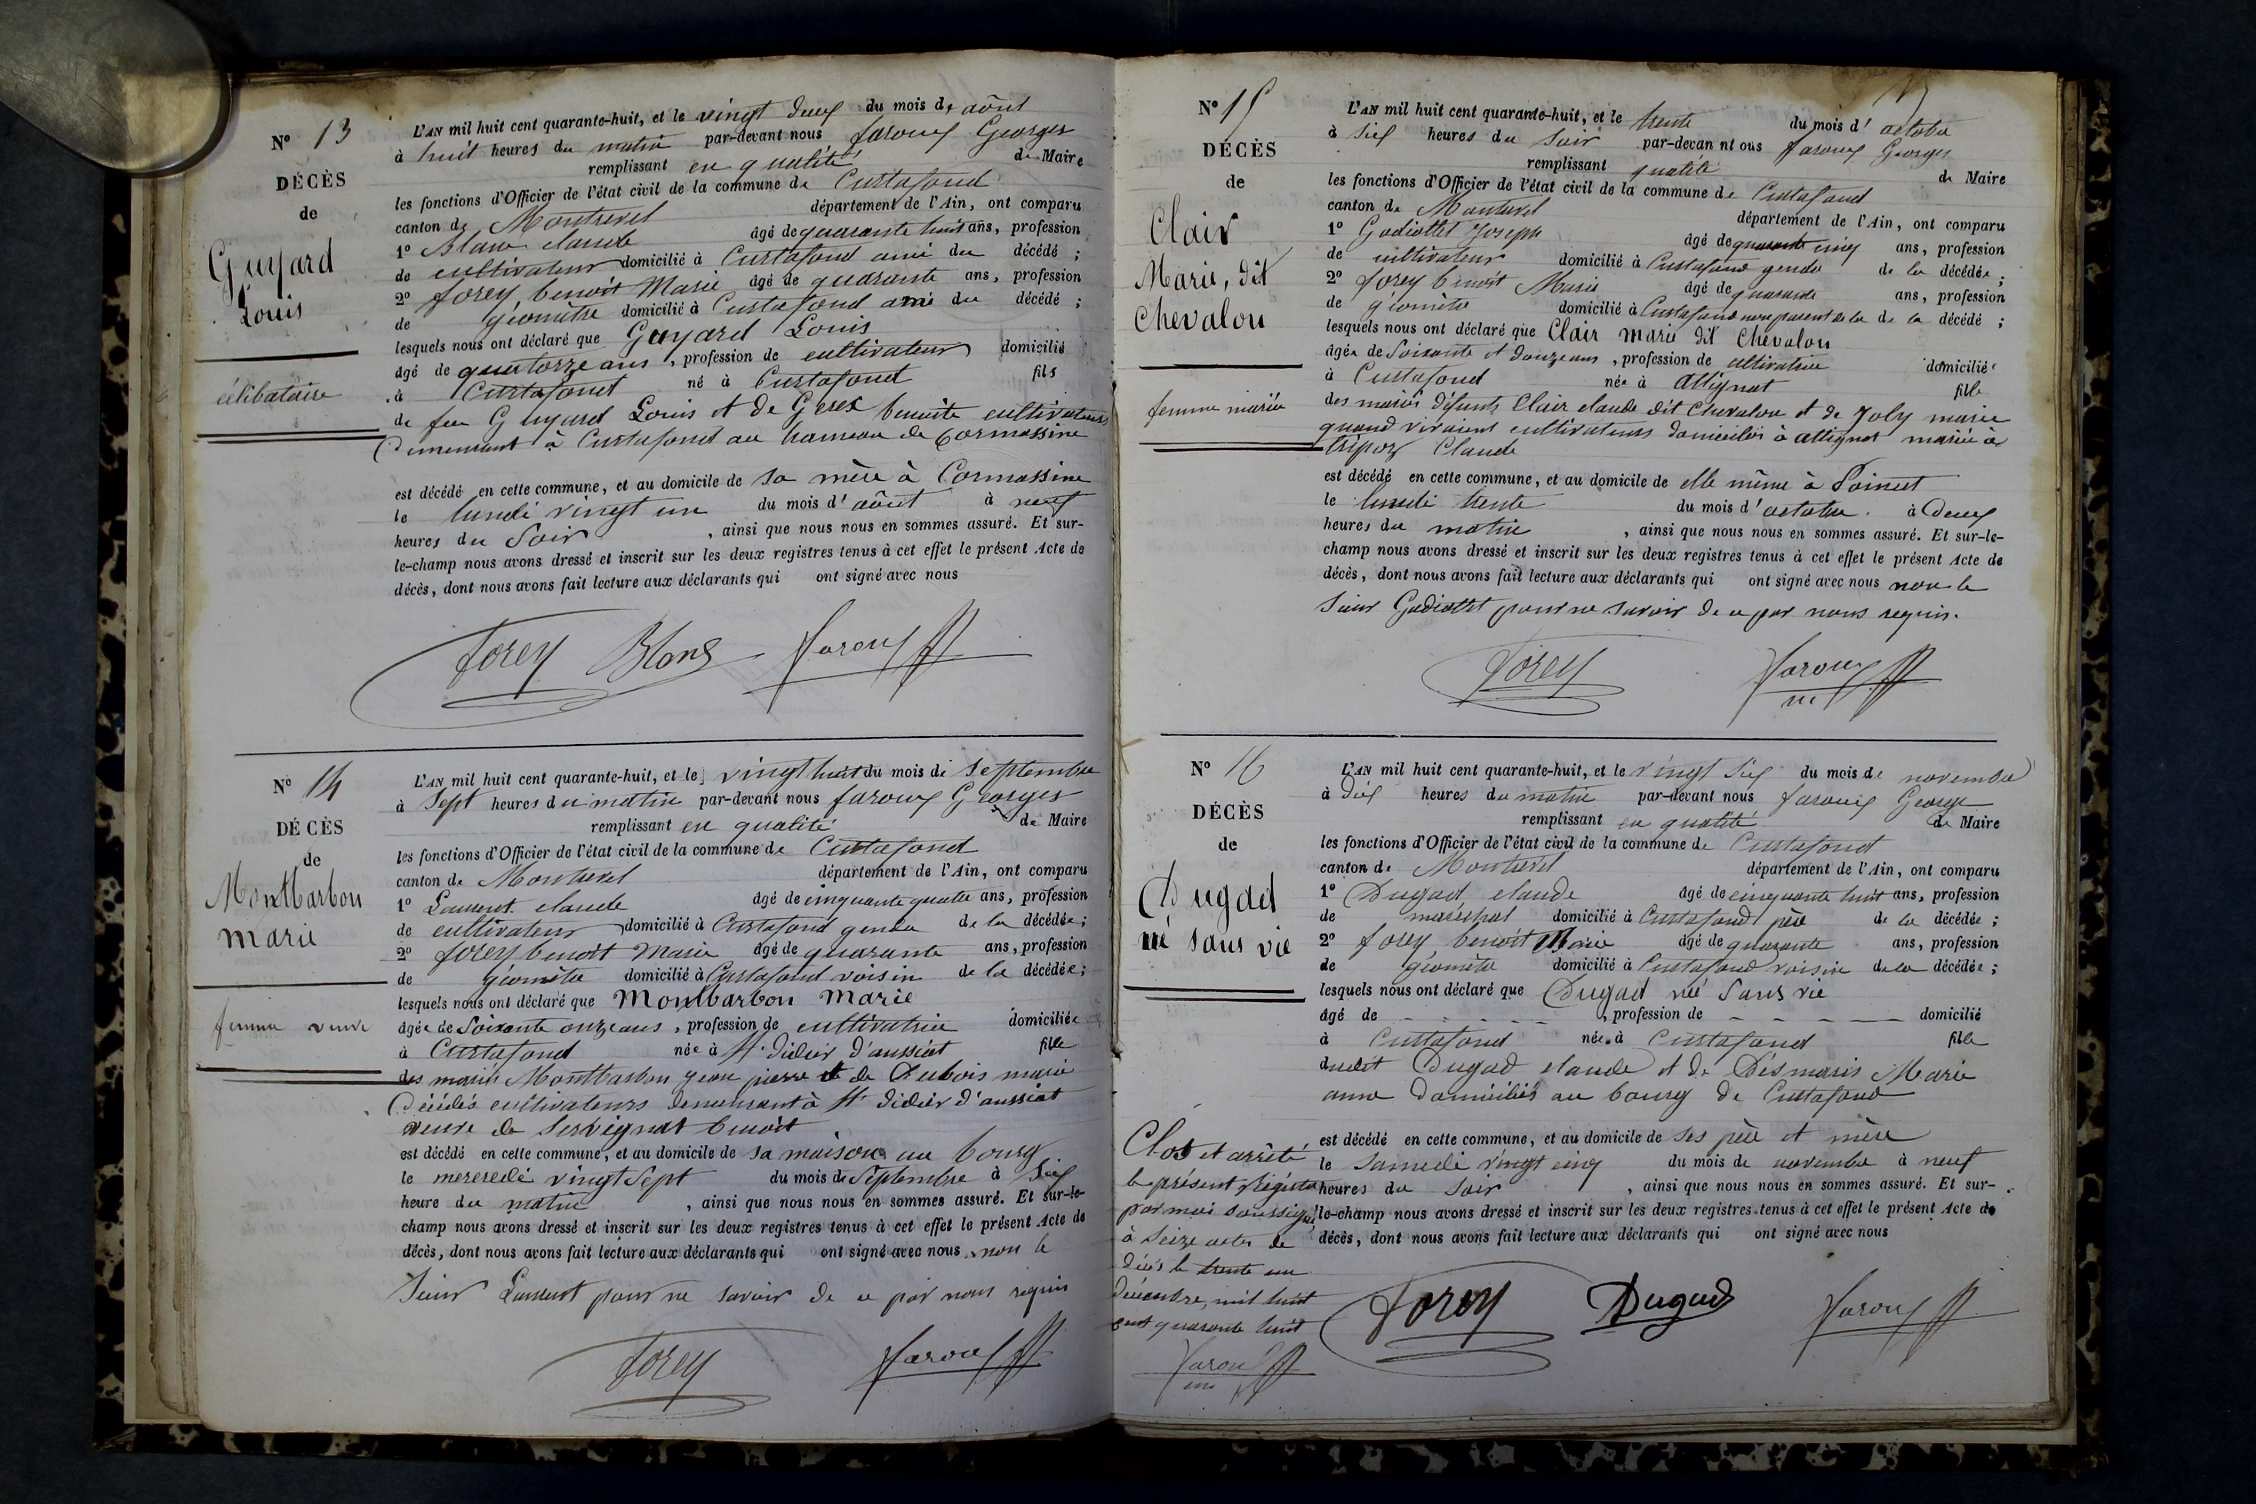 N° 13
DÉCÈS
de
Guyard
Louis
célibataire
L'AN mil huit cent quarante-huit, et le vingt deux du mois d'août
à huit heures du matin par-devant nous faroux Georges
remplissant en qualité de Maire
les fonctions d'Officier de l'état civil de la commune de Curtafond
canton de Montrevel département de l'Ain, ont comparu
1° Blanc claude âgé de quarante huit ans, profession
de cultivateur domicilié à Curtafond ami du décédé ;
2° forey benoit Marie âgé de quarante ans, profession
de géomètre domicilié à Curtafond ami du décédé ;
lesquels nous ont déclaré que Guyard Louis
âgé de quatorze ans, profession de cultivateur domicilié
à Curtafond né à Curtafond fils
de feu Guyard Louis et de Gerex benoite cultivateurs
Demeurant à Curtafond au hameau de Cormassine
est décédé en cette commune, et au domicile de sa mère à Cormassine
le lundi vingt un du mois d'août à neuf
heures du Soir, ainsi que nous nous en sommes assuré. Et sur-
le-champ nous avons dressé et inscrit sur les deux registres tenus à cet effet le présent Acte de
décès, dont nous avons fait lecture aux déclarants qui ont signé avec nous
forey Blanc faroux
N° 14
DÉCÈS
de
Montbarbon
marie
femme veuve
L'AN mil huit cent quarante-huit, et le vingt huit du mois de Septembre
à Sept heures du matin par-devant nous faroux Georges
remplissant en qualité de Maire
les fonctions d'Officier de l'état civil de la commune de Curtafond
canton de Montrevel département de l'Ain, ont comparu
1° Laurent claude âgé de cinquante quatre ans, profession
de cultivateur domicilié à Curtafond gendre de la décédée ;
2° forey benoit Marie âgé de quarante ans, profession
de géomètre domicilié à Curtafond voisin de la décédée ;
lesquels nous ont déclaré que Montbarbon Marie
âgée de Soixante onze ans, profession de cultivatrice domiciliée
à Curtafond née à St didier d'aussiat fille
des mariés Montbarbon jean pierre et de Dubois marie
Décédés cultivateurs demeurant à St didier d'aussiat
veuve de Servignat benoit
est décédé en cette commune, et au domicile de sa maison au bourg
le mercredi vingt Sept du mois de Septembre à Six
heure du matin, ainsi que nous nous en sommes assuré. Et sur-le-
champ nous avons dressé et inscrit sur les deux registres tenus à cet effet le présent Acte de
décès, dont nous avons fait lecture aux déclarants qui ont signé avec nous non le
Sieur Laurent pour ne savoir de ce par nous requis
forey faroux
N° 15
DÉCÈS
de
Clair
Marie, dit
Chevalou
femme mariée
L'AN mil huit cent quarante-huit, et le trente du mois d'octobre
à Six heures du Soir par-devan nt ous faroux Georges
remplissant qualité de Maire
les fonctions d'Officier de l'état civil de la commune de Curtafond
canton de Montrevel département de l'Ain, ont comparu
1° Gadiollet Joseph âgé de quarante cinq ans, profession
de cultivateur domicilié à Curtafond gendre de la décédée ;
2° forey benoit Marie âgé de quarante ans, profession
de géomètre domicilié à Curtafond non parent de la de la décédé ;
lesquels nous ont déclaré que Clair marie dit Chevalou
âgée de Soixante et douze ans, profession de cultivatrice domicilié
à Curtafond née à Attignat fille
des mariés défunts Clair claude dit Chevalou et de Joly marie
quand vivaient cultivateurs domiciliés à attignat mariée à
tripoz Claude
est décédé en cette commune, et au domicile de elle même à
le lundi trente du mois d'octobre à Deux
heures du matin, ainsi que nous nous en sommes assuré. Et sur-le-
champ nous avons dressé et inscrit sur les deux registres tenus à cet effet le présent Acte de
décès, dont nous avons fait lecture aux déclarants qui ont signé avec nous non le
Sieur Gadiollet pour ne savoir de ce par nous requis.
forey faroux
N° 16
DÉCÈS
de
Dugad
né sans vie
L'AN mil huit cent quarante-huit, et le vingt Six du mois de novembre
à Dix heures du matin par-devant nous faroux George
remplissant en qualité de Maire
les fonctions d'Officier de l'état civil de la commune de Curtafond
canton de Montrevel département de l'Ain, ont comparu
1° Dugad claude âgé de cinquante huit ans, profession
de maréchal domicilié à Curtafond père de la décédée ;
2° forey benoit Marie âgé de quarante ans, profession
de géomètre domicilié à Curtafond voisin de la décédée ;
lesquels nous ont déclaré que Dugad né Sans vie
âgé de - - - - - -, profession de - - - - - domicilié
à Curtafond née à Curtafond fille
dudit Dugad claude et de Désmaris Marie
anne Domiciliés au bourg de Curtafond
est décédé en cette commune, et au domicile de ses père et mère
le Samedi vingt cinq du mois de novembre à neuf
heures du Soir, ainsi que nous nous en sommes assuré. Et sur-
le-champ nous avons dressé et inscrit sur les deux registres tenus à cet effet le présent Acte de
décès, dont nous avons fait lecture aux déclarants qui ont signé avec nous
forey Dugad faroux
Clos et arrêté
le présent Régistre
par moi soussigné
à Seize actes de
décès le trente un
Décembre, mil huit
cent quarante huit
faroux